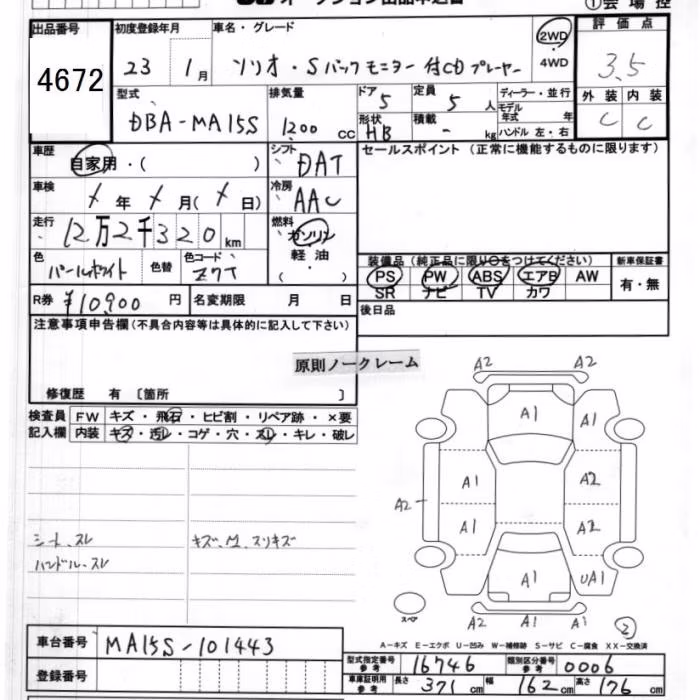 ①会場控
出品番号
4672
初度登録年月
23 1月
車名・グレード
ソリオ・Sバックモニター付CDプレーヤー
2WD
4WD
評価点
3.5
外装 内装
C C
型式
DBA-MA15S
排気量
1200 cc
ドア 5
定員 5人
形状 HB
積載 - kg
ディーラー・並行
モデル年式 年式
ハンドル 左・右
車歴
自家用・( )
シフト DAT
セールスポイント(正常に機能するものに限ります)
車検
年 月( 日)
冷房 AAC
走行
12万2千320km
燃料
ガソリン
軽油
( )
色
パールホワイト
色替
色コード
Z7T
装備品(純正品に限り○をつけてください)
PS PW ABS エアB AW
SR ナビ TV カワ
新車保証書
有・無
R券 ¥10,900円
名変期限 月 日
後日品
注意事項申告欄(不具合内容等は具体的に記入して下さい)
原則ノークレーム
修復歴 有 〔箇所 〕
検査員記入欄
FW キズ・飛石・ヒビ割・リペア跡・×要
内装 キズ・汚レ・コゲ・穴・スレ・キレ・破レ
シート、スレ
ハンドル、スレ
キズ、凹、スリキズ
A2 A2
A1 A1
A1 A2
A2
A1 A2
A1 UA1
スペア
A2 A1 A1
②
A-キズ E-エクボ U-凹み W-補修跡 S-サビ C-腐食 XX-交換済
車台番号 MA15S-101443
登録番号
型式指定番号 参考 16746
類別区分番号 参考 0006
車庫証明用 参考 長さ 371cm 幅 162cm 高さ 176cm